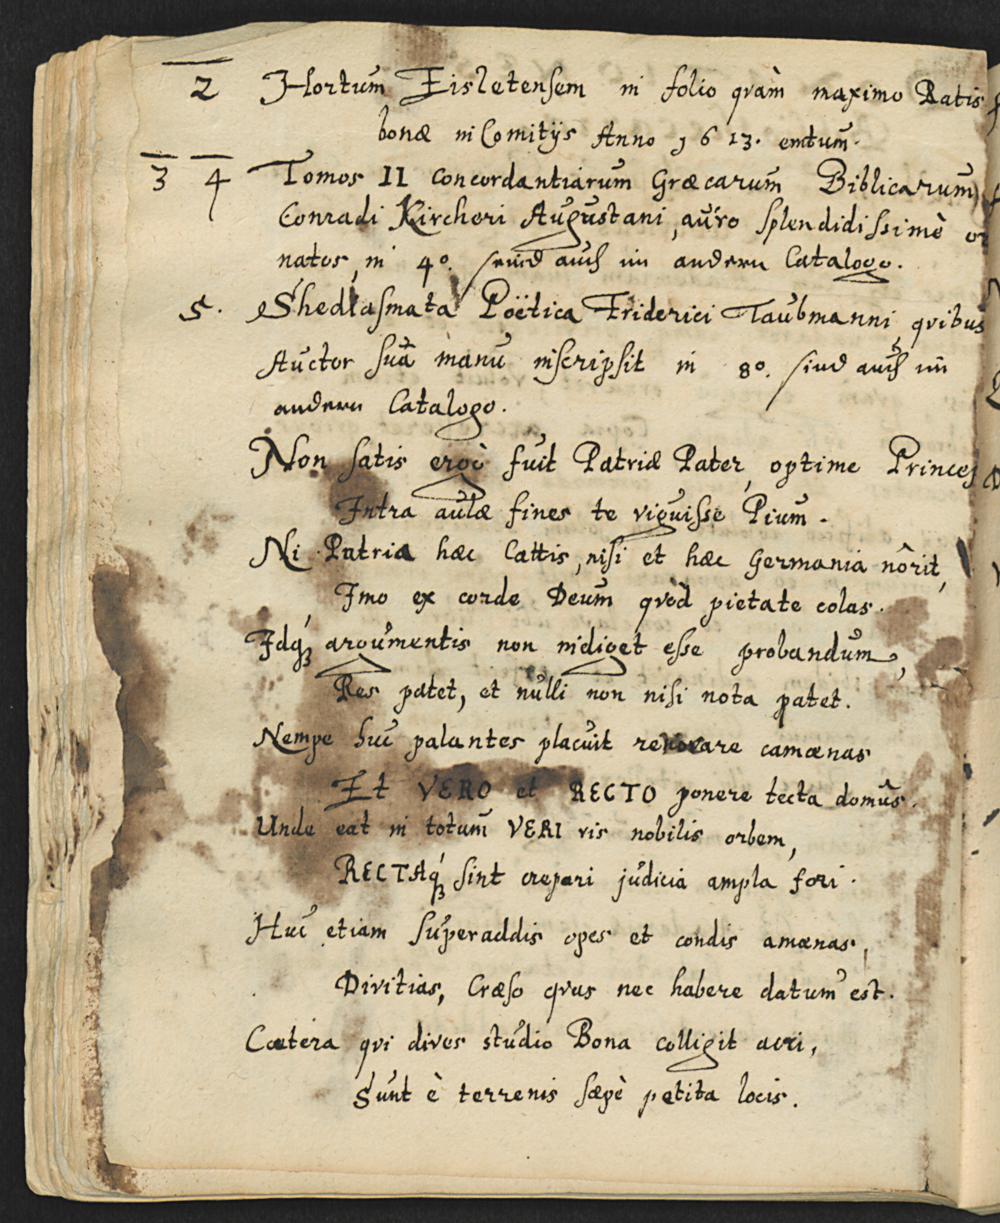 2 Hortum Eisletensem in folio qvàm maximo Ratis
bonæ in Comitijs Anno 1613. emtum.
3 4 Tomos II concordantiarum Græcarum Biblicarum,
Conradi Kircheri Augustani, auro splendidissimè or
natos, in 4º. seind auch im andern Catalogo.
5. Shediasmata Poëtica Friderici Taubmanni, qvibus
Auctor suâ manu inscripsit in 8º. sind auch im
andern Catalogo.
Non satis ergò fuit Patriæ Pater, optime Princeps
Intra aulæ fines te viguisse Pium.
Ni Patria hæc Cattis, nisi et hæc Germania nôrit,
Imo ex corde Deum qvòd pietate colas.
Idq́ꝫ argumentis non indiget esse probandum,
Res patet, et nulli non nisi nota patet.
Nempe huc palantes placuit revocare camœnas
Et VERO et RECTO ponere tecta domûs.
Unde eat in totum VERI vis nobilis orbem,
RECTAq́ꝫ sint crepari judicia ampla fori.
Huc etiam superaddis opes et condis amœnas,
Divitias, Cræso qvas nec habere datum est.
Cætera qvi dives studio Bona colligit acri,
Sunt è terrenis sæpè petita locis.